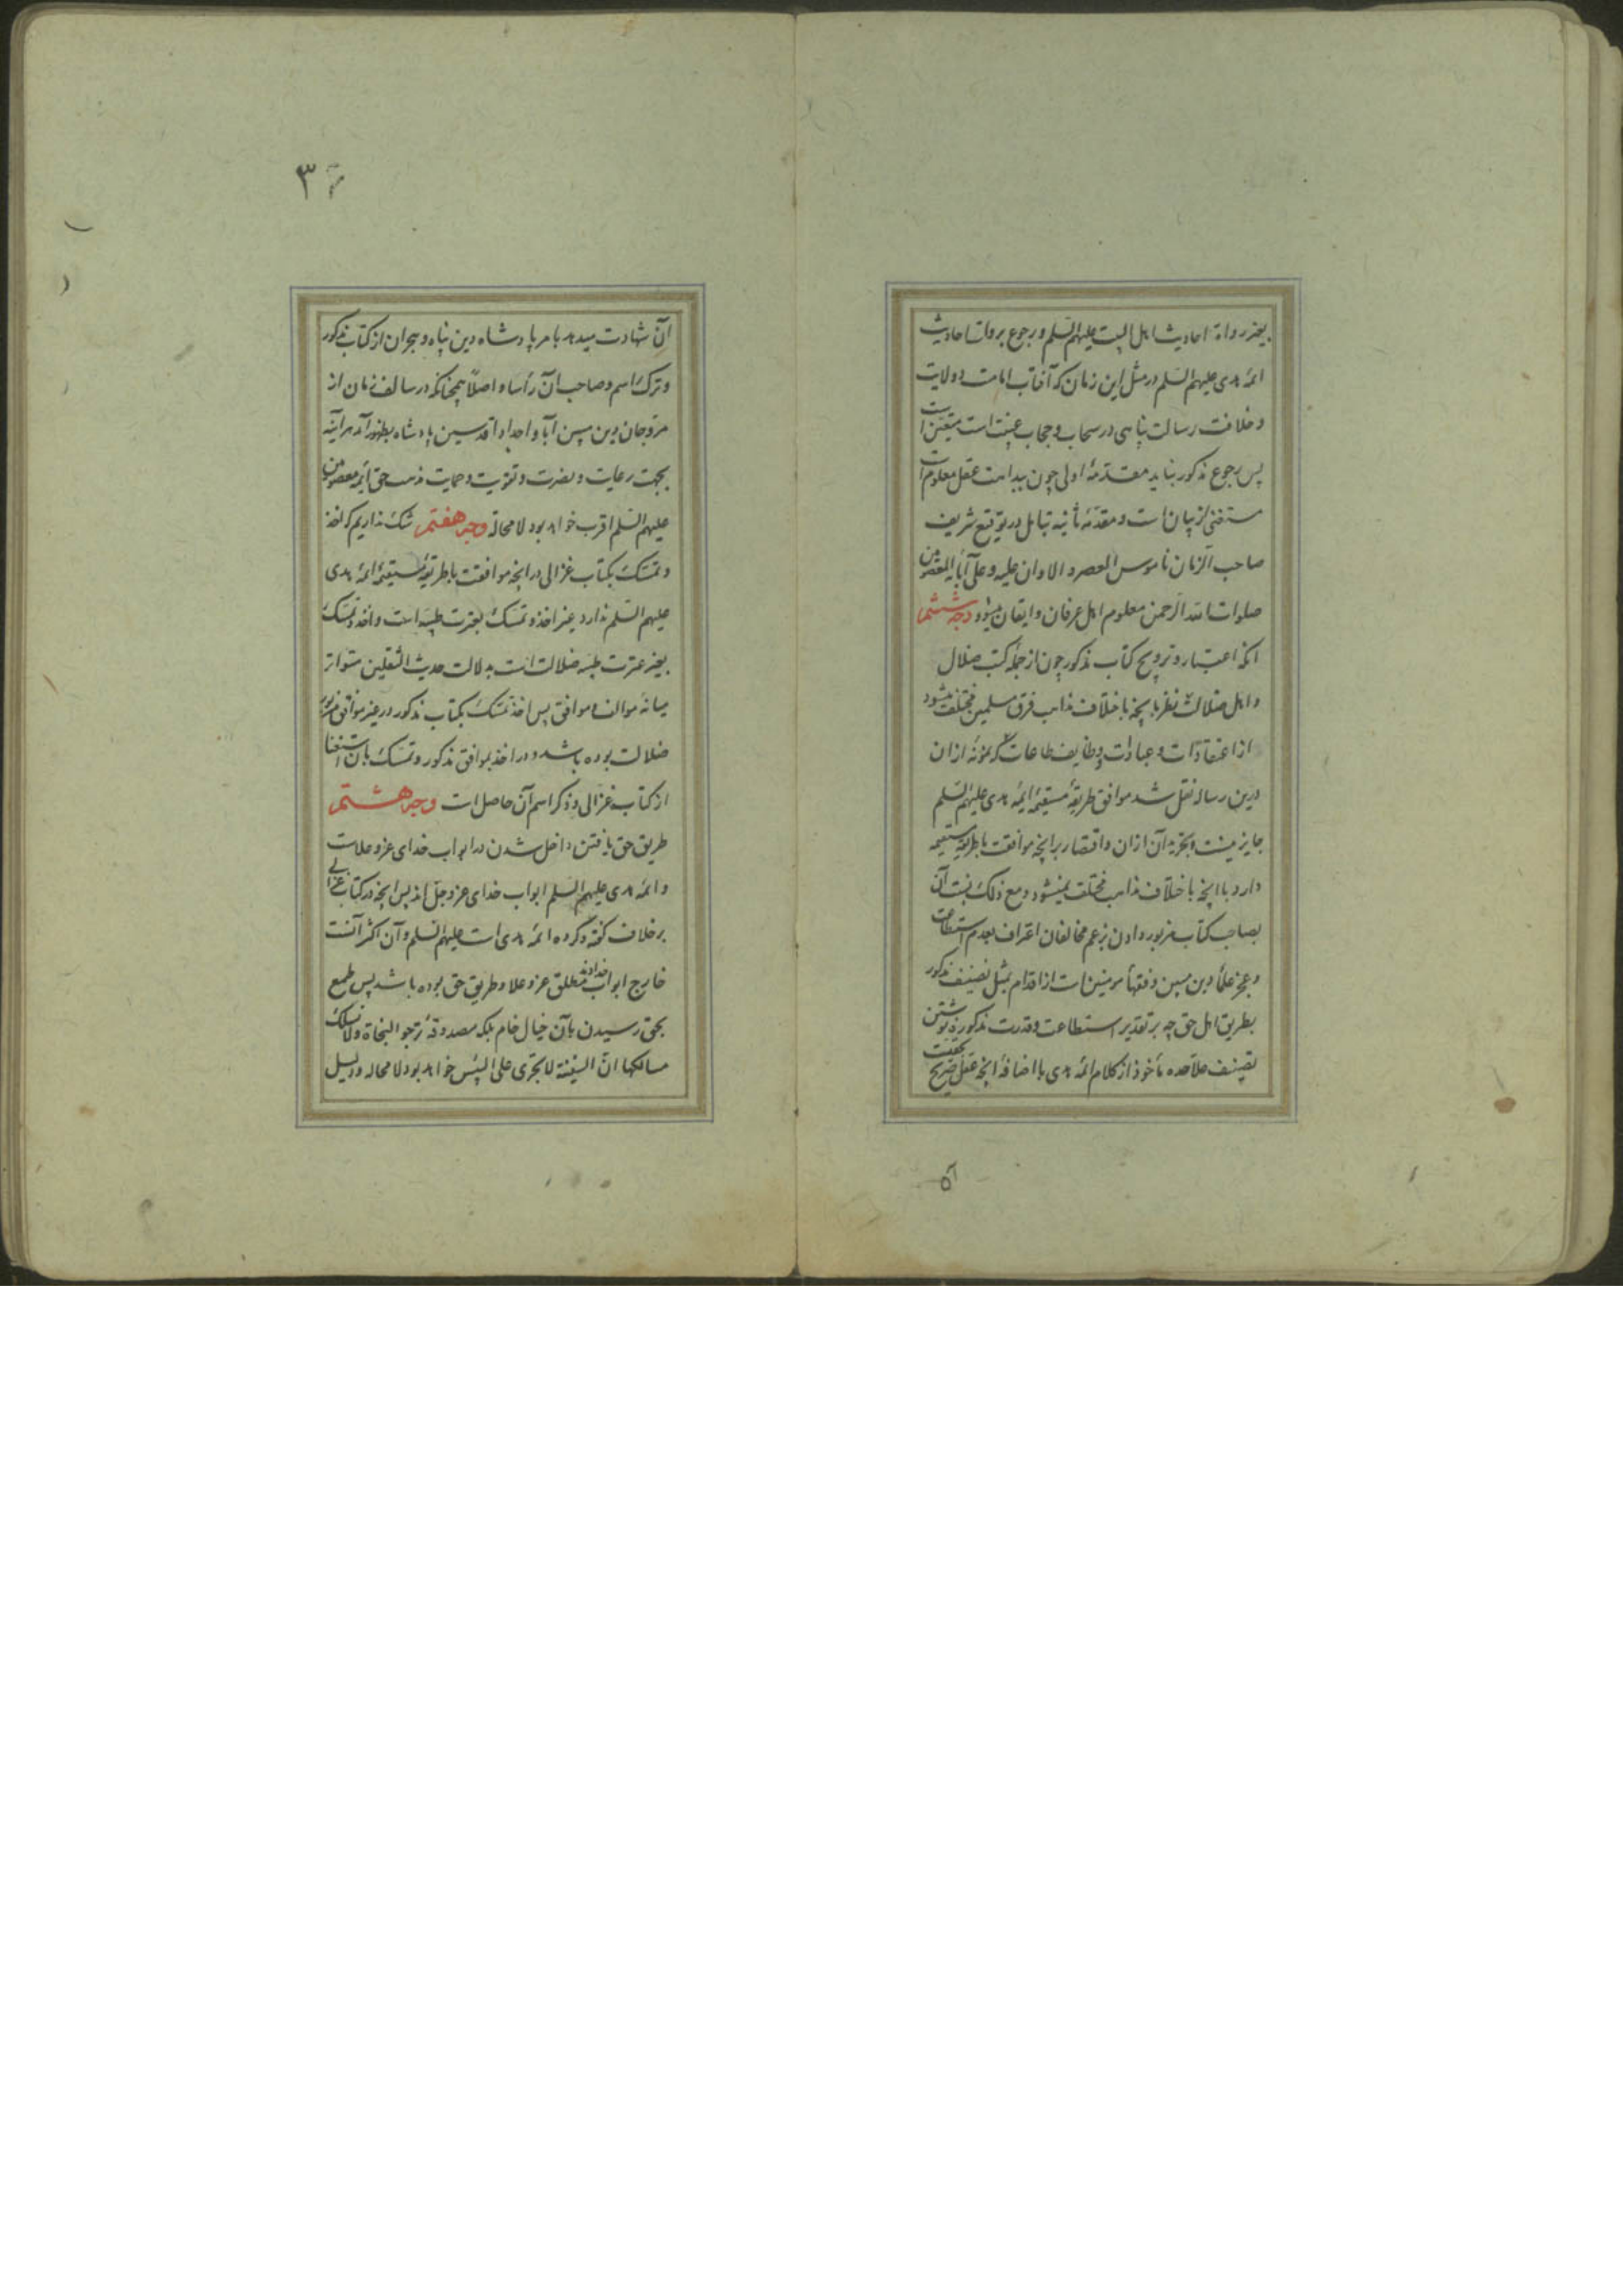 بغیر رواة احادیث اهل البیت علیهم السلم و رجوع بروات احادیث
ائمه هدی علیهم السلم در مثل این زمان که آفتاب امامت و ولایت
و خلافت رسالت پناهی در سحاب و حجاب غیبت است متعین است
پس رجوع مذکور نباید مقدمهٔ اولی چون ببداهت عقل معلوم است
مستغنی از بیان است و مقدمه ثانیه بتامل در توقیع شریف
صاحب الزمان ناموس العصر و الاوان علیه و علی آبائه المعصومین
صلوات الله الرحمن معلوم اهل عرفان و ایقان میشود وجه ششم
انکه اعتبار و ترویج کتاب مذکور چون از جمله کتب ضلال
و اهل ضلالت نظر بانچه باختلاف مذاهب فرق مسلمین مختلف میشود
از اعتقادات و عبادات و وظایف طاعات که نمونه ازان
درین رساله نقل شد موافق طریقهٔ مستقیمهٔ ائمه هدی علیهم السلم
جایز نیست و تجزیه آن ازان و اقتصار برانچه موافقت با طریقه مستقیمه
دارد با انچه باختلاف مذاهب مختلف نمیشود و مع ذلک نسبت آن
بصاحب کتاب مزبور دادن بزعم مخالفان اعتراف بعدم استطاعت
و عجز علماء دین مبین و فقهاء مومنین است از اقدام بمثل تصنیف مذکور
بطریق اهل حق چه بر تقدیر استطاعت و قدرت مذکوره نوشتن
تصنیف علاحده ماخوذ از کلام ائمه هدی با اضافهٔ انچه عقل صریح
آن
۳۶
آن شهادت میدهد بامر پادشاه دین پناه و هجران از کتاب مذکور
و ترک اسم و صاحب آن رأسا و اصلاً همچنانکه در سالف زمان از
مروجان دین مبین آبا و اجداد اقدسین پادشاه بظهور آمد هر آینه
بجهت رعایت و نصرت و تقویت و حمایت مذهب حق ائمه معصومین
علیهم السلم اقرب خواهد بود لامحالة وجه هفتم شک نداریم که اخذ
و تمسک بکتاب غزالی در انچه موافقت با طریقهٔ مستقیمهٔ ائمه هدی
علیهم السلم ندارد غیر اخذ و تمسک بعترت طیبه است و اخذ و تمسک
بغیر عترت طیبه ضلالت است بدلالت حدیث الثقلین متواتر
میانه مخالف و موافق پس اخذ و تمسک بکتاب مذکور در غیر موافق مزبور
ضلالت بوده باشد و در اخذ بموافق مذکور و تمسک بان استغنا
از کتاب غزالی و ذکر اسم آن حاصل است وجه هشتم
طریق حق یافتن داخل شدن در ابواب خدای عز و علاست
و ائمه هدی علیهم السلم ابواب خدای عز و جل اند پس انچه در کتاب غزالی
برخلاف گفته و کرده ائمه هدی است علیهم السلم و آن اکثر آنست
خارج ابواب خداوند مطلق عز و علا و طریق حق بوده باشد پس طمع
بحق رسیدن بآن خیال خام بلکه مصدوقهٔ ترجو النجاة ولا تسلک
مسالکها ان السفینة لا تجری علی الیبس خواهد بود لامحاله و دلیل